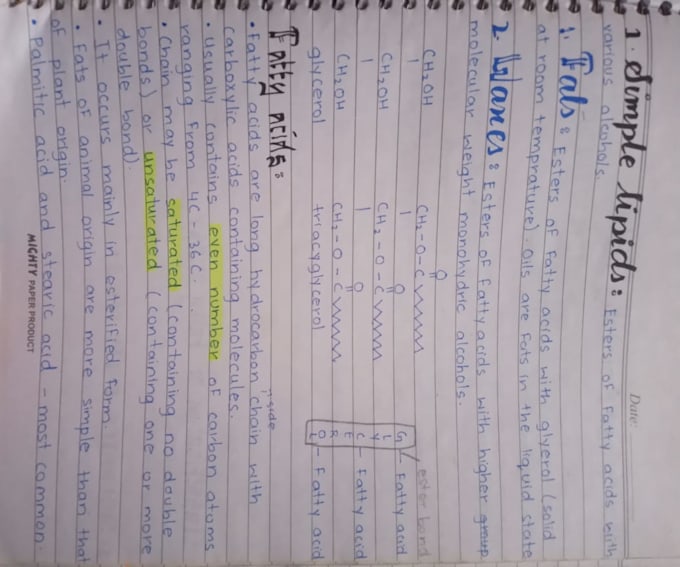 Date:
1. Simple lipids: Esters of fatty acids with
various alcohols.
1. Fats: Esters of fatty acids with glyerol (solid
at room temprature). Oils are fats in the liquid state
2. Waxes: Esters of fatty acids with higher group
molecular weight monohydric alcohols.
CH₂OH CH₂-O-C O ester bond
CH₂OH CH₂-O-C O G L Y - Fatty acid
CH₂OH CH₂-O-C O C E - Fatty acid
glycerol triacyglycerol R O L - Fatty acid
Fatty acids:
• Fatty acids are long hydrocarbon chain with side
carboxylic acids containing molecules.
• Usually contains even number of carbon atoms
ranging from 4C - 36C.
• Chain may be saturated (containing no double
bonds) or unsaturated (containing one or more
double bond).
• It occurs mainly in esterified form.
• Fats of animal origin are more simple than that
of plant origin.
• Palmitic acid and stearic acid - most common.
MIGHTY PAPER PRODUCT